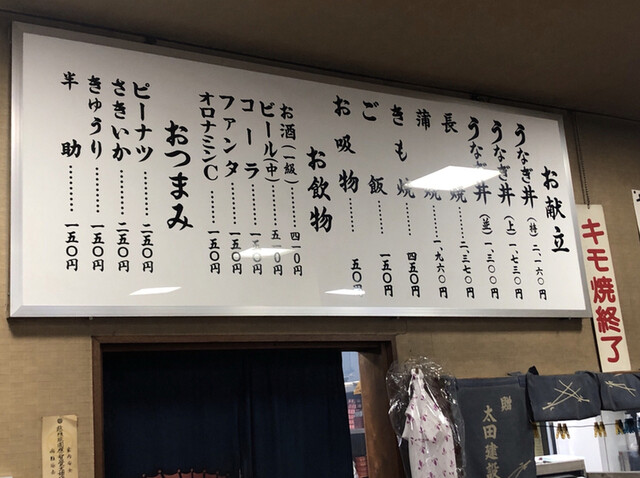 お献立
うなぎ丼（特）二、一六〇円
うなぎ丼（上）一、七三〇円
うなぎ丼（並）一、三〇〇円
長焼……二、三七〇円
蒲焼……一、九六〇円
きも焼……四五〇円
ご飯……一五〇円
お吸物……五〇円
お飲物
お酒（一級）……四一〇円
ビール（中）……五一〇円
コーラ……一五〇円
ファンタ……一五〇円
オロナミンC……一五〇円
おつまみ
ピーナツ……二五〇円
さきいか……二五〇円
きゅうり……一五〇円
半助……一五〇円
キモ焼終了
贈
太田建設